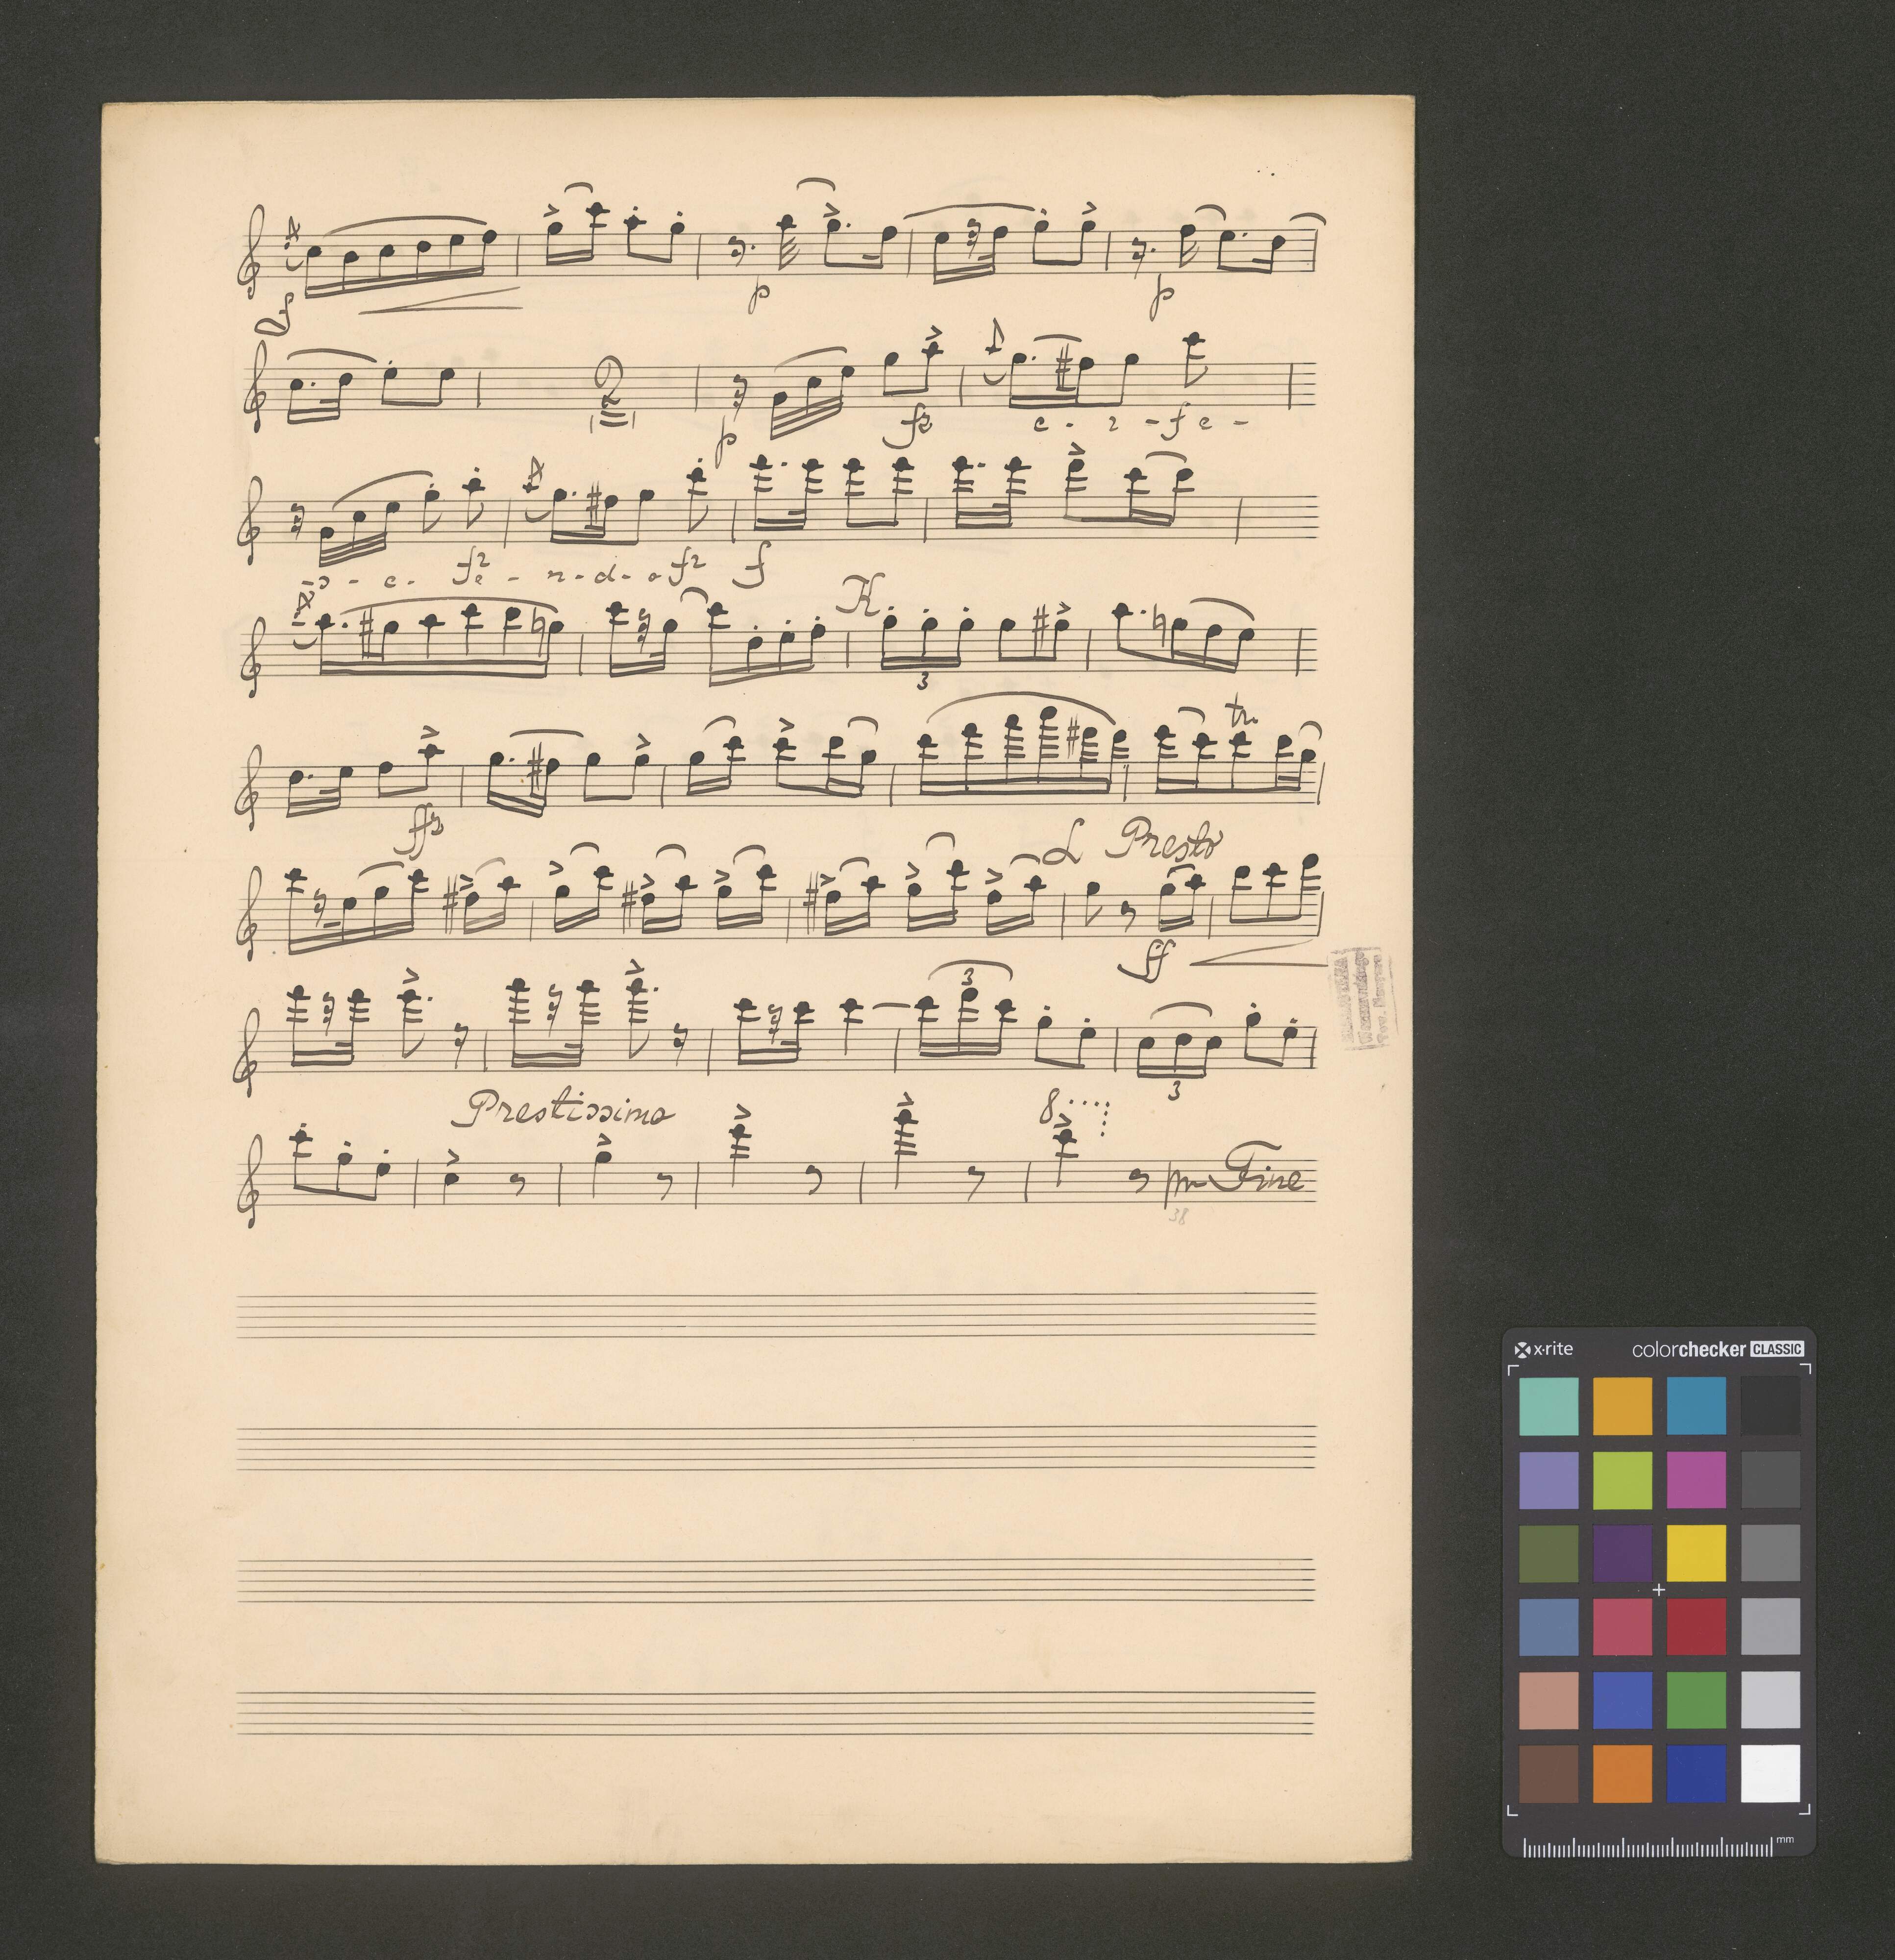 p
p
2
p
fz
c - r - f e -
- s - c - fz e - n - d - o fz f
K
3
ffz
tr
L Presto
ff
3
3
Prestissimo
8
Fine
38
x·rite colorchecker CLASSIC
mm